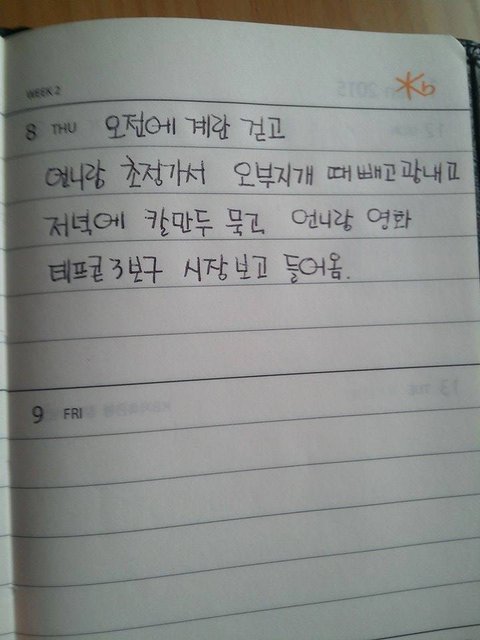 WEEK 2
8 THU 오전에 계란 걷고
언니랑 초정가서 오부지개 때빼고 광내고
저녁에 칼만두 묵고 언니랑 영화
테프콘3 보구 시장보고 들어옴.
9 FRI